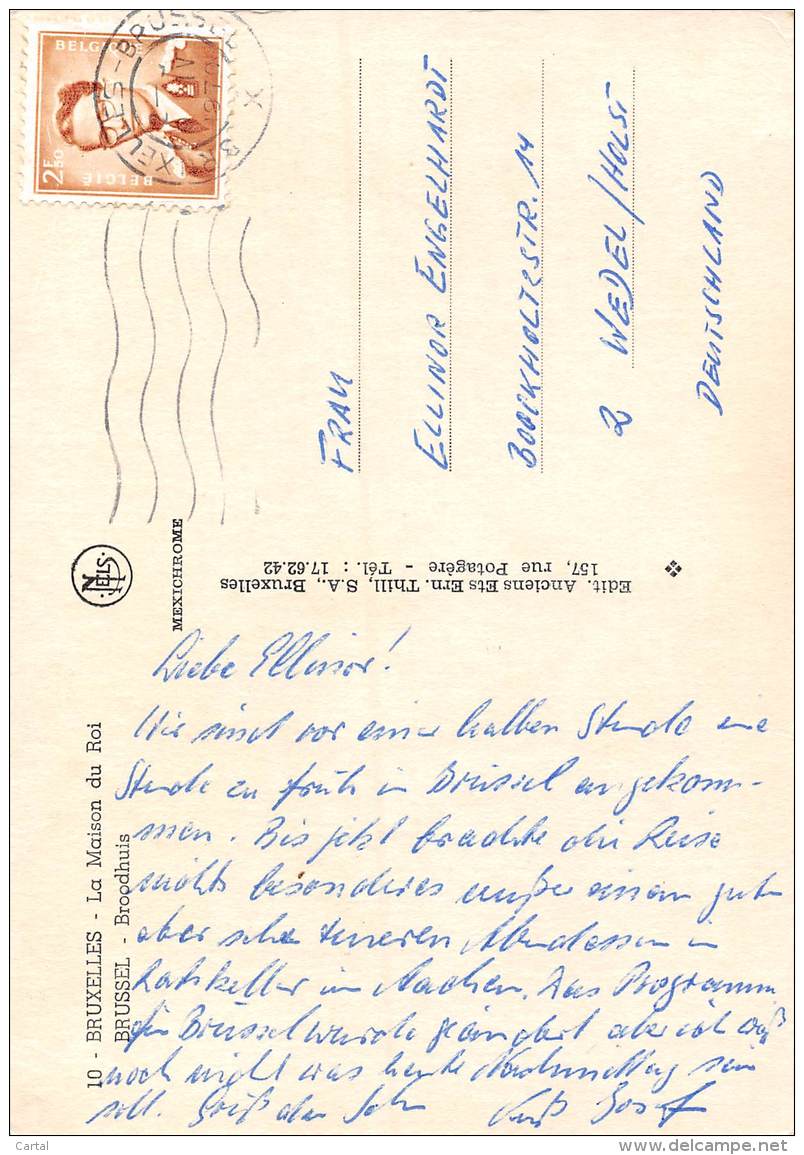 BELGIQUE
2F50
BELGIË
BRUXELLES - BRUSSEL X
FRAU
ELLINOR ENGELHARDT
BOOCKHOLTZSTR. 14
2 WEDEL/HOLST
DEUTSCHLAND
NELS
MEXICHROME
Edit. Anciens Ets Ern. Thill, S.A., Bruxelles
157, rue Potagère - Tél. : 17.62.42
10 - BRUXELLES - La Maison du Roi
BRUSSEL - Broodhuis
Liebe Ellinor!
Wir sind vor einer halben Stunde eine
Stunde zu früh in Brüssel angekom-
men. Bis jetzt brachte die Reise
nichts besonderes außer einem guten
aber sehr teueren Abendessen im
Ratskeller in Aachen. Das Programm
für Brüssel wurde geändert aber ich weiß
noch nicht was heute Nachmittag sein
soll. Grüß den Gruß Josef
Cartal
delcampe.net